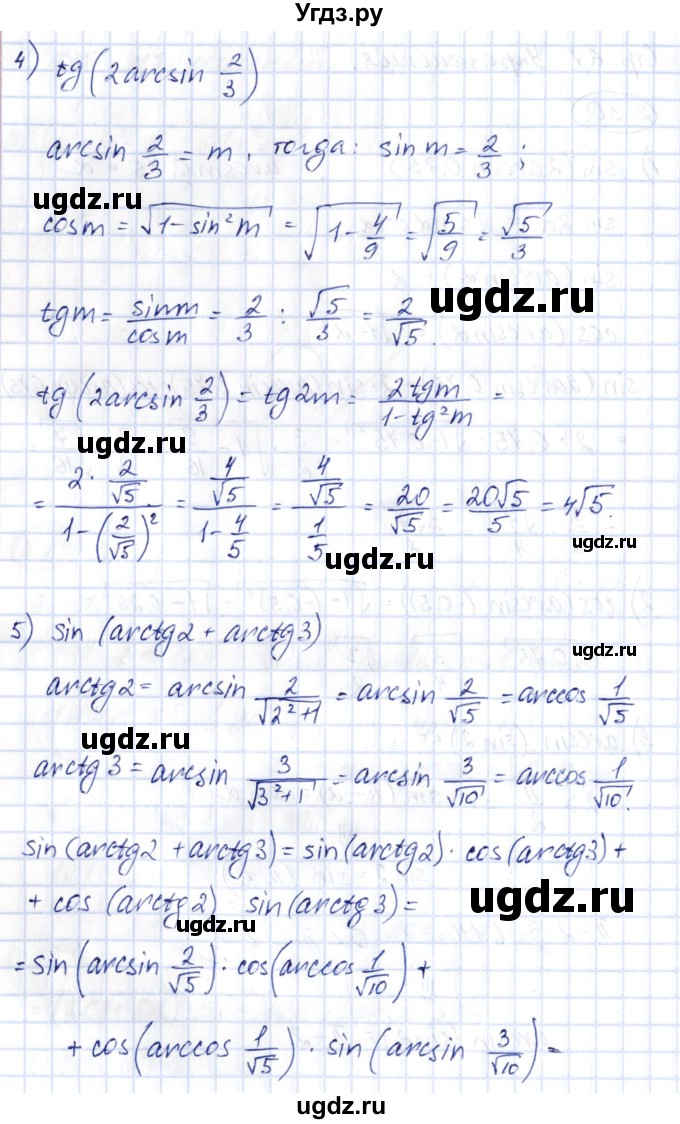 Угдз.ру
4) tg(2arcsin 2/3)
arcsin 2/3 = m, тогда: sin m = 2/3;
ugdz.ru
cosm = √(1-sin²m) = √(1-4/9) = √(5/9) = √5/3
ugdz.ru
tgm = sinm/cosm = 2/3 : √5/3 = 2/√5.
tg(2arcsin 2/3) = tg2m = 2tgm/(1-tg²m) =
ugdz.ru
= (2·2/√5)/(1-(2/√5)²) = (4/√5)/(1-4/5) = (4/√5)/(1/5) = 20/√5 = 20√5/5 = 4√5.
ugdz.ru
ugdz.ru
5) sin(arctg2 + arctg3)
ugdz.ru
arctg2 = arcsin 2/√(2²+1) = arcsin 2/√5 = arccos 1/√5
ugdz.ru
arctg3 = arcsin 3/√(3²+1) = arcsin 3/√10 = arccos 1/√10.
sin(arctg2 + arctg3) = sin(arctg2)·cos(arctg3)+
+ cos(arctg2) sin(arctg3) =
ugdz.ru
ugdz.ru
= sin(arcsin 2/√5)·cos(arccos 1/√10) +
+ cos(arccos 1/√5)·sin(arcsin 3/√10) =
ugdz.ru